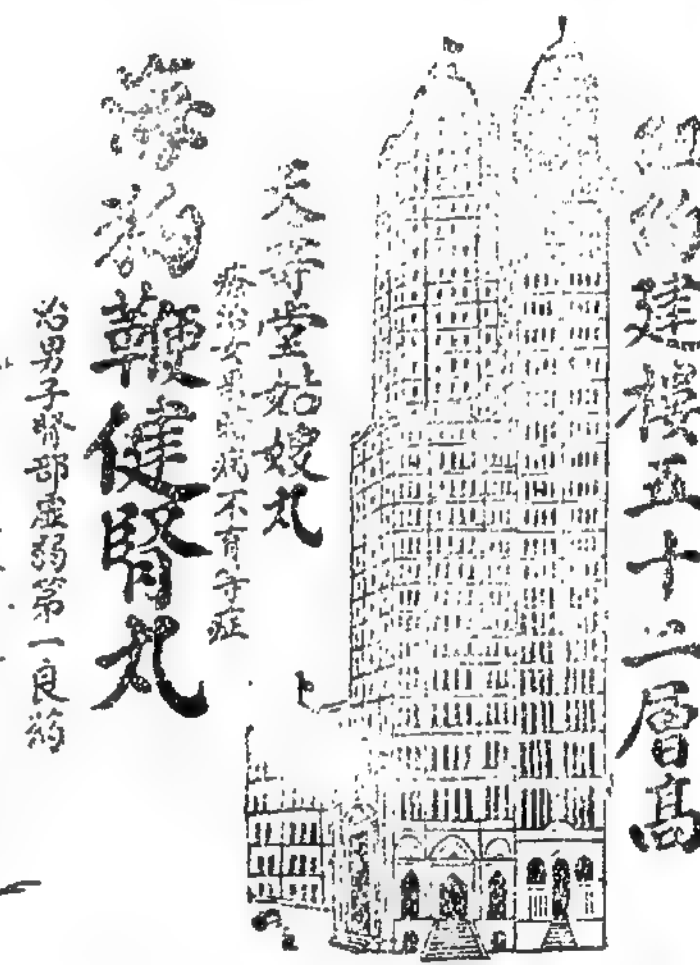 紐約建樓五十二層高
天壽堂姑嫂丸
療治女界病不育等症
海狗鞭健腎丸
治男子腎部虛弱第一良藥